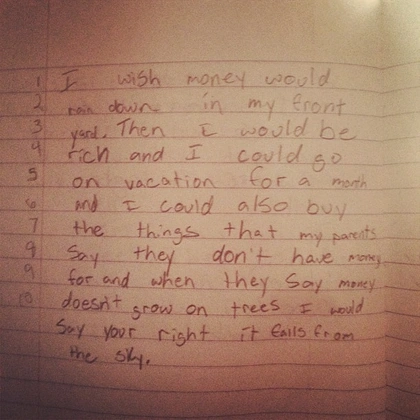 1 I wish money would
2 rain down in my front
3 yard. Then I would be
4 rich and I could go
5 on vacation for a month
6 and I could also buy
7 the things that my parents
9 Say they don't have money
9 for and when they Say money
10 doesn't grow on trees I would
Say your right it falls from
the sky.